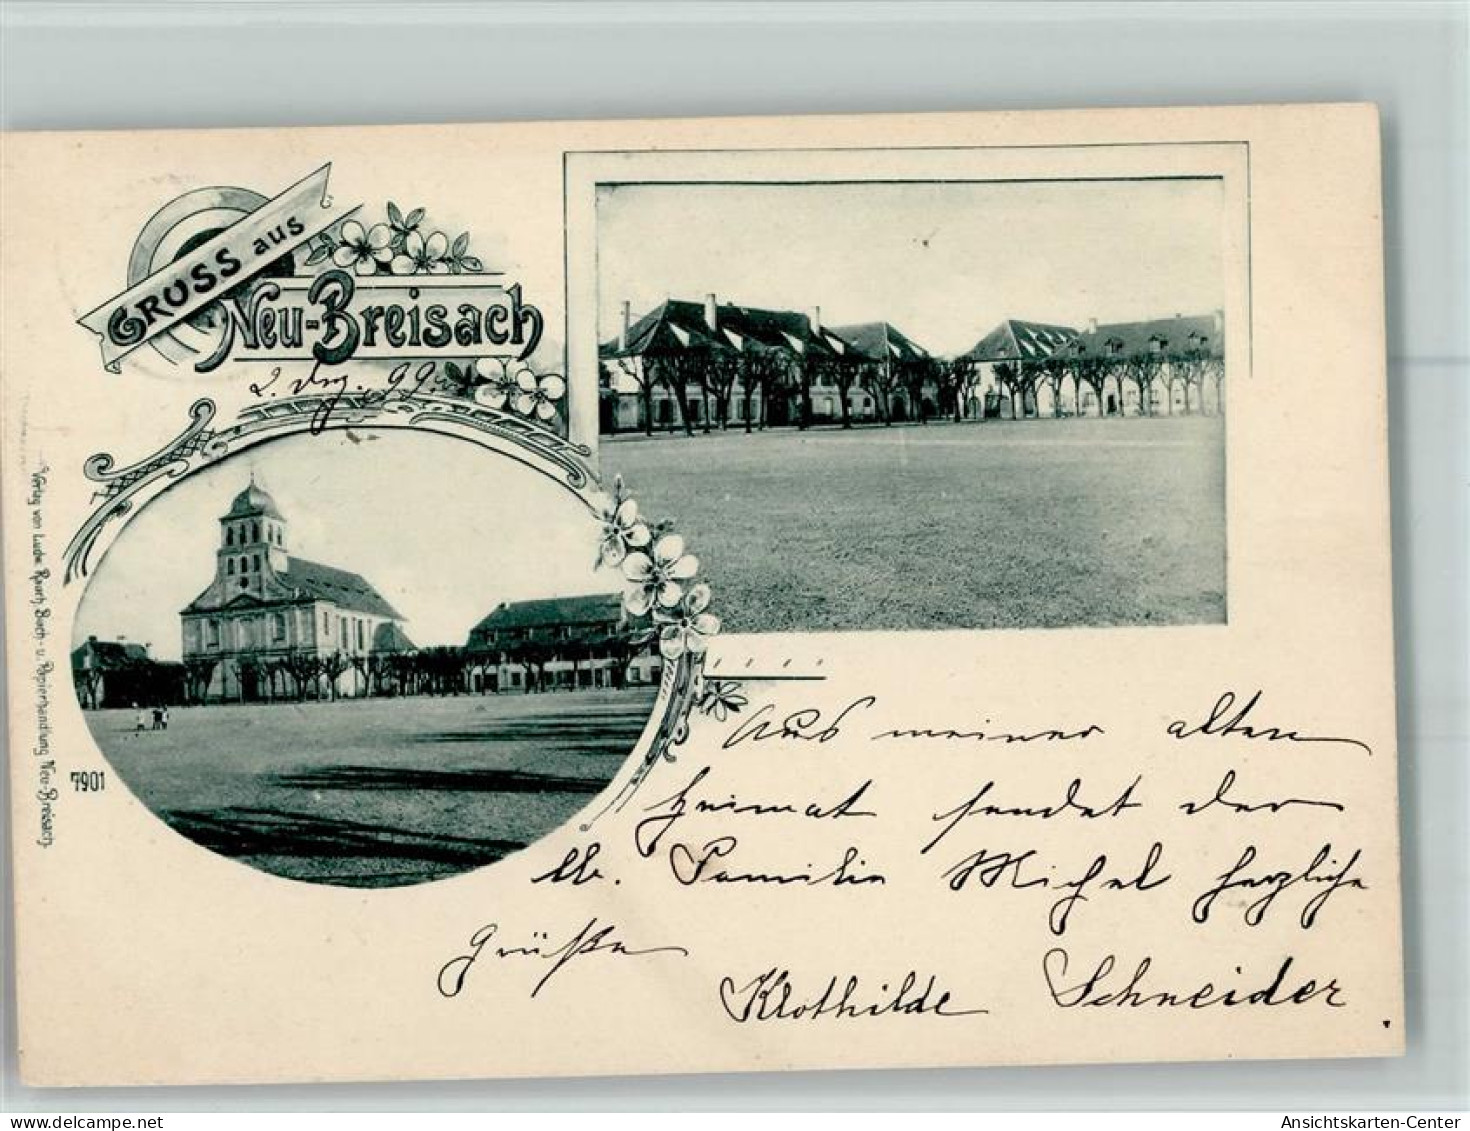 GRUSS aus
Neu-Breisach
2. Dez. 99.
Verlag von Ludw. Rauch, Buch- u. Papierhandlung Neu-Breisach
7901
Aus meiner alten
Heimat sendet der
lb. Familie Michel herzliche
Grüße
Klothilde Schneider
Ansichtskarten-Center